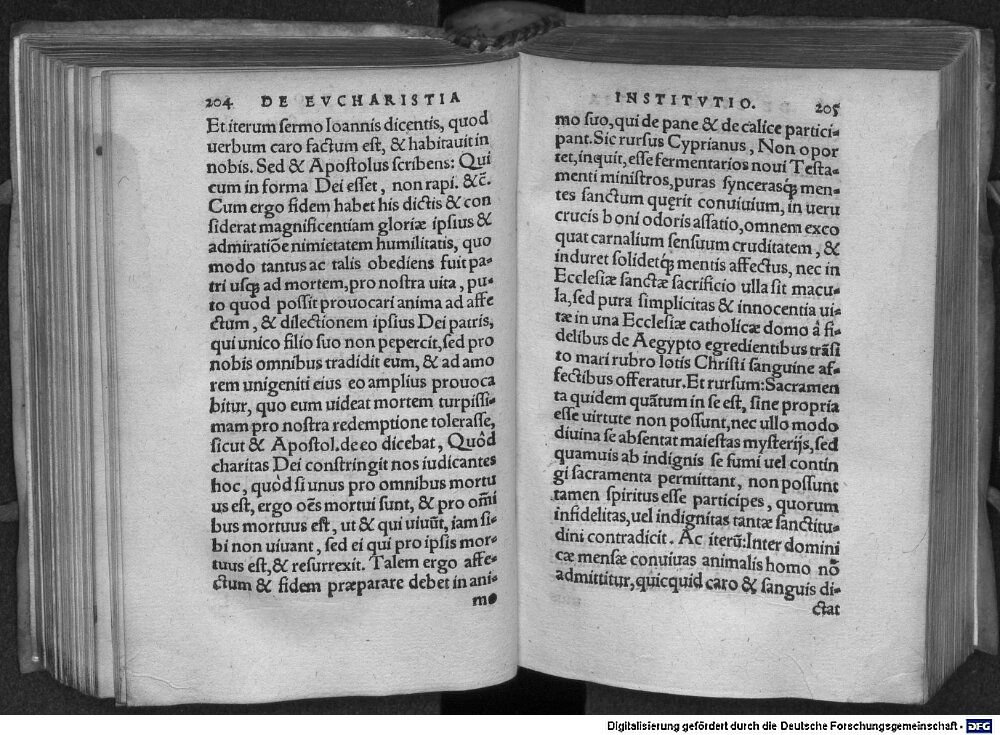 204 DE EVCHARISTIA
Et iterum sermo Ioannis dicentis, quod
uerbum caro factum est, & habitauit in
nobis. Sed & Apostolus scribens: Qui
cum in forma Dei esset, non rapi. &c̃.
Cum ergo fidem habet his dictis & con
siderat magnificentiam gloriæ ipsius &
admiratiõe nimietatem humilitatis, quo
modo tantus ac talis obediens fuit pa-
tri usq; ad mortem, pro nostra uita, pu-
to quòd possit prouocari anima ad affe
ctum, & dilectionem ipsius Dei patris,
qui unico filio suo non pepercit, sed pro
nobis omnibus tradidit eum, & ad amo
rem unigeniti eius eo amplius prouoca
bitur, quo eum uideat mortem turpissi-
mam pro nostra redemptione tolerasse,
sicut & Apostol. de eo dicebat, Quòd
charitas Dei constringit nos iudicantes
hoc, quòd si unus pro omnibus mortu
us est, ergo oẽs mortui sunt, & pro om̃i
bus mortuus est, ut & qui uiuũt, iam si-
bi non uiuant, sed ei qui pro ipsis mor-
tuus est, & resurrexit. Talem ergo affe-
ctum & fidem præparare debet in ani-
mo
INSTITVTIO. 205
mo suo, qui de pane & de calice partici-
pant. Sic rursus Cyprianus, Non opor
tet, inquit, esse fermentarios noui Testa-
menti ministros, puras syncerasq́; men-
tes sanctum querit conuiuium, in ueru
crucis boni odoris assatio, omnem exco
quat carnalium sensuum cruditatem, &
induret solidetq́; mentis affectus, nec in
Ecclesiæ sanctæ sacrificio ulla sit macu-
la, sed pura simplicitas & innocentia ui-
tæ in una Ecclesiæ catholicæ domo à fi-
delibus de Aegypto egredientibus trãsi
to mari rubro lotis Christi sanguine af-
fectibus offeratur. Et rursum: Sacramen
ta quidem quãtum in se est, sine propria
esse uirtute non possunt, nec ullo modo
diuina se absentat maiestas mysterijs, sed
quamuis ab indignis se sumi uel contin
gi sacramenta permittant, non possunt
tamen spiritus esse participes, quorum
infidelitas, uel indignitas tantæ sanctitu-
dini contradicit. Ac iterũ: Inter domini
cæ mensæ conuiuas animalis homo nõ
admittitur, quicquid caro & sanguis di-
ctat
Digitalisierung gefördert durch die Deutsche Forschungsgemeinschaft - DFG